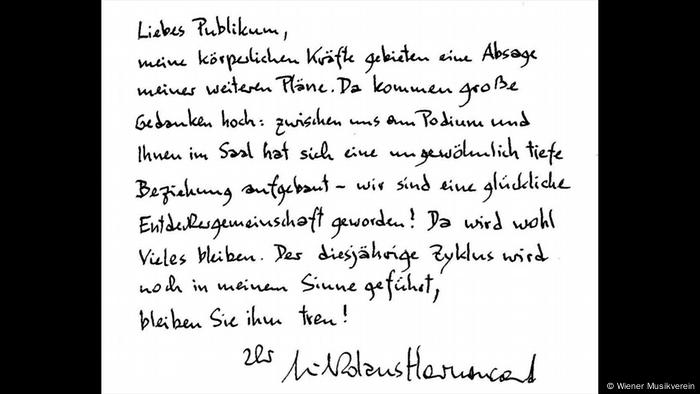 Liebes Publikum,
meine körperlichen Kräfte gebieten eine Absage
meiner weiteren Pläne. Da kommen große
Gedanken hoch: zwischen uns am Podium und
Ihnen im Saal hat sich eine ungewöhnlich tiefe
Beziehung aufgebaut – wir sind eine glückliche
Entdeckergemeinschaft geworden! Da wird wohl
Vieles bleiben. Der diesjährige Zyklus wird
noch in meinem Sinne geführt,
bleiben Sie ihm treu!
Ihr Nikolaus Harnoncourt
© Wiener Musikverein